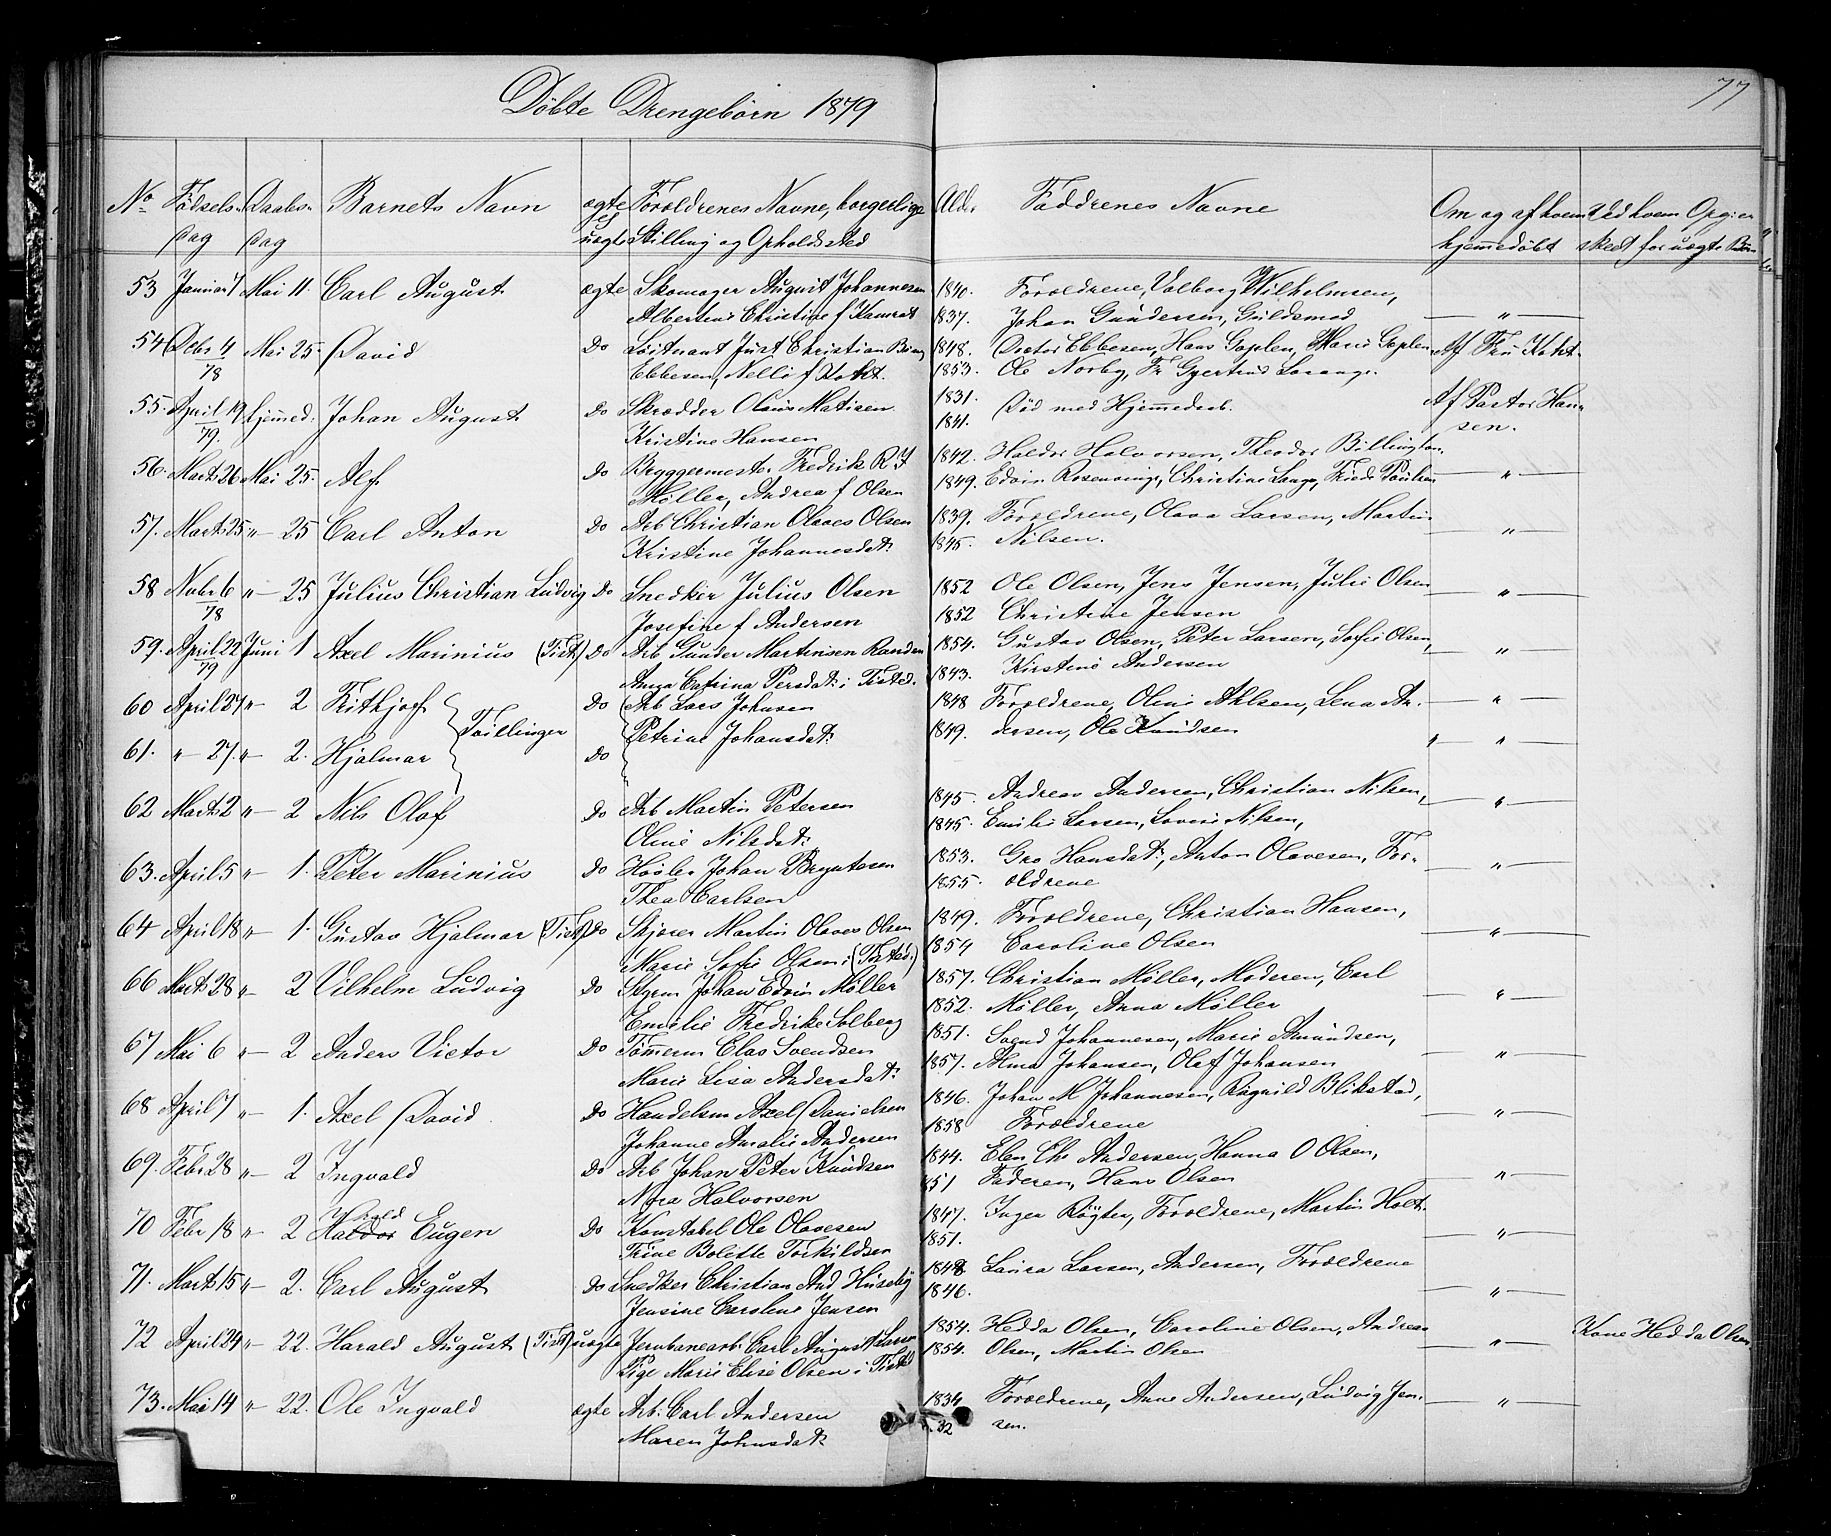 77
Döbte Drengebörn 1879
No Födsels- Daabs- Barnets Navn ægte Forældrenes Navne, borgerlige Ald. Faddrenes Navne Om og af hvem Ved hvem Opgier
dag dag uægte Stilling og Opholdssted hjemmedöbt skedt for uægte
53 Januar 7 Mai 11. Carl August ægte Skomager August Johannesen 1840. Forældrene, Valborg Wilhelmsen,
Albertine Christine f Kamrat 1837. Johan Gundersen, Guldsmed — " —
54 Debr 4 Mai 25. David Do Löitnant Just Christian 1848. Doctor Ebbesen, Hans Gaplen, Marie Gaplen Af Fru
78 Ebbesen, Nelli f 1853. Ole Norby, Fr Gjertrud
55. April 19 hjemmed: Johan August Do Skrædder Olaus Matisen 1831. Död med Hjemmedaab. Af Pastor Han-
79. Kristine Hansen 1841. sen.
56. Marts 26 Mai 25. Alf Do Bryggermester Fredrik R. J 1842. Haldor Halvorsen, Theodor Billington
Möller, Andrea f Olsen 1849. Edvin Rosenvinge, Christine Lange, — " —
57. Marts 25 " — 25 Carl Anton Do Arb Christian Olaves Olsen 1839. Forældrene, Olava Larsen, Martin
Kristine Johannesdat: 1845. Nilsen. — " —
58 Nobr 6 " — 25 Julius Christian Ludvig Do Snedker Julius Olsen 1852 Ole Olsen, Jens Jensen, Julie Olsen
78 Josefine f Andersen 1852 Christine Jensen — " —
59. April 22 Juni 1 Axel Marinius (Tist.) Do Arb Gunder Martinsen 1854. Gustav Olsen, Peter Larsen, Sofie Olsen,
79 Anna Catrina Persdat: i Tisted. 1843. Kirstine Andersen — " —
60 April 27 " — 2 Frithjof Do Arb Lars Johnsen 1848 Forældrene, Oline Ahlsen, Lena An- — " —
Tvillinger Petrine Johansdat: 1849. dersen, Ole Knudsen
61. " 27. " — 2. Hjalmar Do " — " —
62 Marts 2 " — 2 Nils Olaf Do Arb Martin Petersen 1845. Andreas Andersen, Christian Nilsen,
Oline Nilsdat: 1845. Emilie Larsen, Lovise Nilsen, — " —
63. April 5 " — 1. Peter Marinius Do Johan Bryntesen 1853. Gro Hansdat:, Anton Olavesen, For-
Thea Carlsen 1855. ældrene — " —
64 April 18 " — 1. Gustav Hjalmar (Tist) Do Martin Olaves Olsen 1849. Forældrene, Christian Hansen,
Marie Sofie Olsen i (Tisted) 1854 Caroline Olsen — " —
66 Marts 28 " — 2 Vilhelm Ludvig Do Styrm Johan Edvin Möller 1857. Christian Möller, Moderen, Carl
Emilie Fredrike Solberg 1852. Möller, Anna Möller — " —
67 Mai 6 " — 2 Anders Victor Do Tömerm Clas Svendsen 1851. Svend Johannesen, Marie Amundsen,
Marie Lisa Andersdat: 1857. Alma Johansen, Olaf Johansen — " —
68 April 7 " — 1. Axel David Do Handelsm Axel Danielsen 1846. Johan M Johannesen, Ragnild Blikstad,
Johanne Amalie Andersen 1858 Forældrene — " —
69. Febr 28 " — 2 Ingvald Do Arb Johan Peter Knudsen 1844. Elen Chr Andersen, Hanna O Olsen,
Nora Halvorsen 51 Faderen, Hans Olsen — " —
Harald
70 Febr 18 " — 2 Haldor Eugen Do Konstabel Ole Olavesen 1847. Inger Rögter, Forældrene, Martin Holt.
Trine Bolette Torkildsen 1851. — " —
71. Marts 15 " — 2. Carl August Do Snedker Christian And Huseby 1848 Laura Larsen, Andersen, Forældrene
Jensine Carolene Jensen 1846. — " —
72 April 24 " — 22. Harald August (Tist) uægte Jernbanearb: Carl August Larsen 1854. Hedda Olsen, Caroline Olsen, Andreas — " — Kone Hedda Olsen
Pige Marie Elise Olsen i Tisted 1854. Olsen, Martin Olsen
73. Mai 14 " — 22. Ole Ingvald ægte Arb: Carl Andersen 1834 Forældrene, Anne Andersen, Ludvig Jen-
Maren Johnsdat: 32 sen. — " —